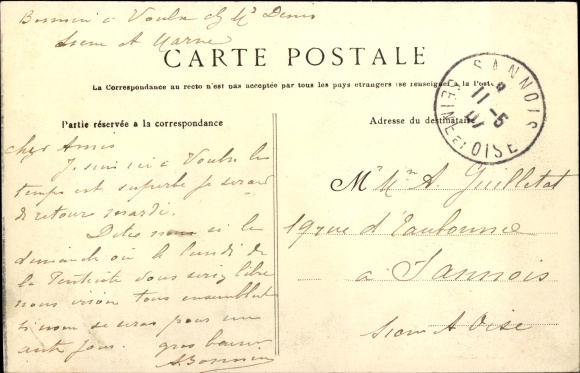 Bosmin à Voulx ch Mr Denis
Seine et Marne
CARTE POSTALE
La Correspondance au recto n'est pas acceptée par tous les pays étrangers (se renseigner à la Poste)
SANNOIS
11-5
07
SEINE-ET-OISE
Partie réservée a la correspondance
Adresse du destinataire
cher Amis
Je suis ici a Voulx le
temps est superbe je serai
de retour mardi.
Dites nous si le
dimanche ou le lundi de
la Pentecôte vous serez libre
nous irions tous ensemble
si non se sera pour une
autre fois. gros baiser
A Bosmin
Mr Mme A. Guilletat
19 rue d'Eaubonne
a Sannois
Seine et Oise